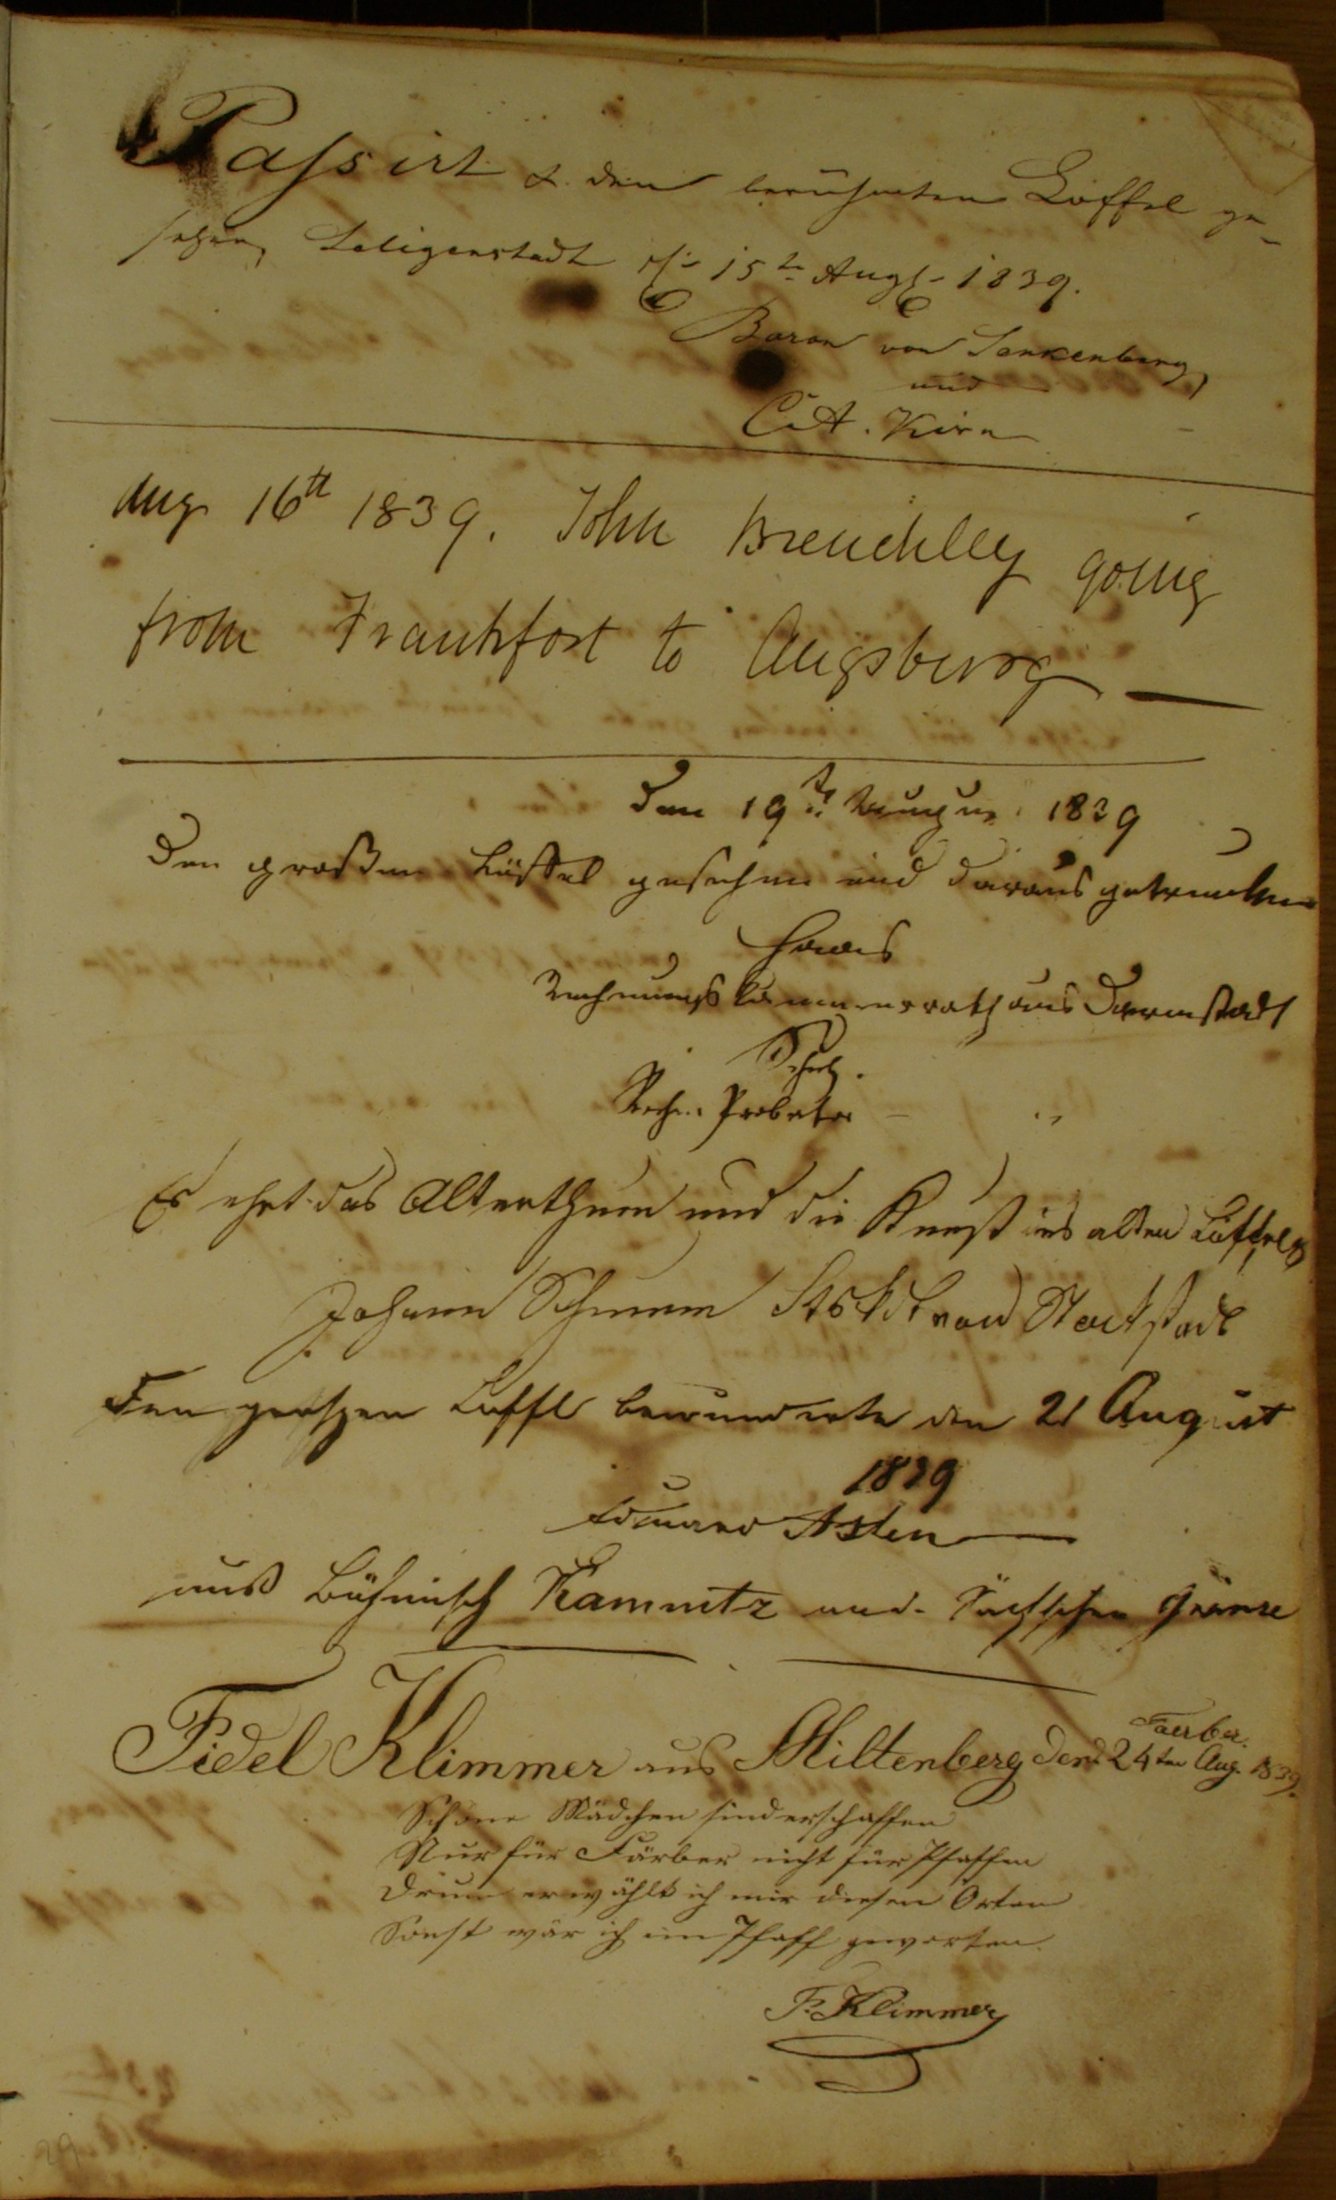 Passirt & den berühmten Löffel ge-
sehen, Seligenstadt d. 15n Augs. 1839.
Baron von Senkenberg,
und
C. A. Kirn
Aug 16th 1839. John Brenchley going
from Frankfort to Augsburg —
Den 19te August 1839
Den großen Löffel gesehen und daraus getrunken
Haas
Rechnungskammerrath aus Darmstadt
Rechn. Probator
Es ehrt das Alterthum und die Kunst des alten Löffels
Johann Schumm von Stockstadt
Den großen Löffl bewunderte den 21 August
1839
Eduard Asten
aus Böhmisch Kamnitz an d. Sächschen Gränze
Faerber.
Fidel Klimmer aus Miltenberg den 24ten Aug. 1839.
Schöne Mädchen sind erschaffen
Nur für Färber nicht für Pfaffen
Drum erwählt ich mir diesen Orten
Sonst wär ich ein Pfaff geworten.
F. Klimmer
29